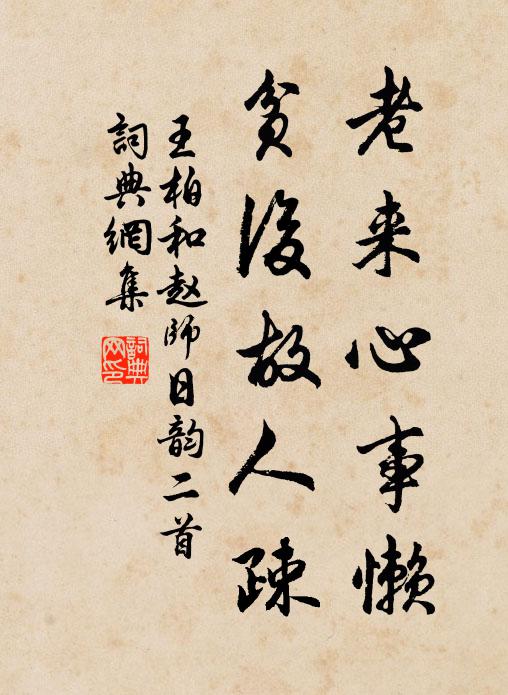 老来心事懒
贫後故人疎
王柏和赵师日韵二首
詞典網集
詞典网印